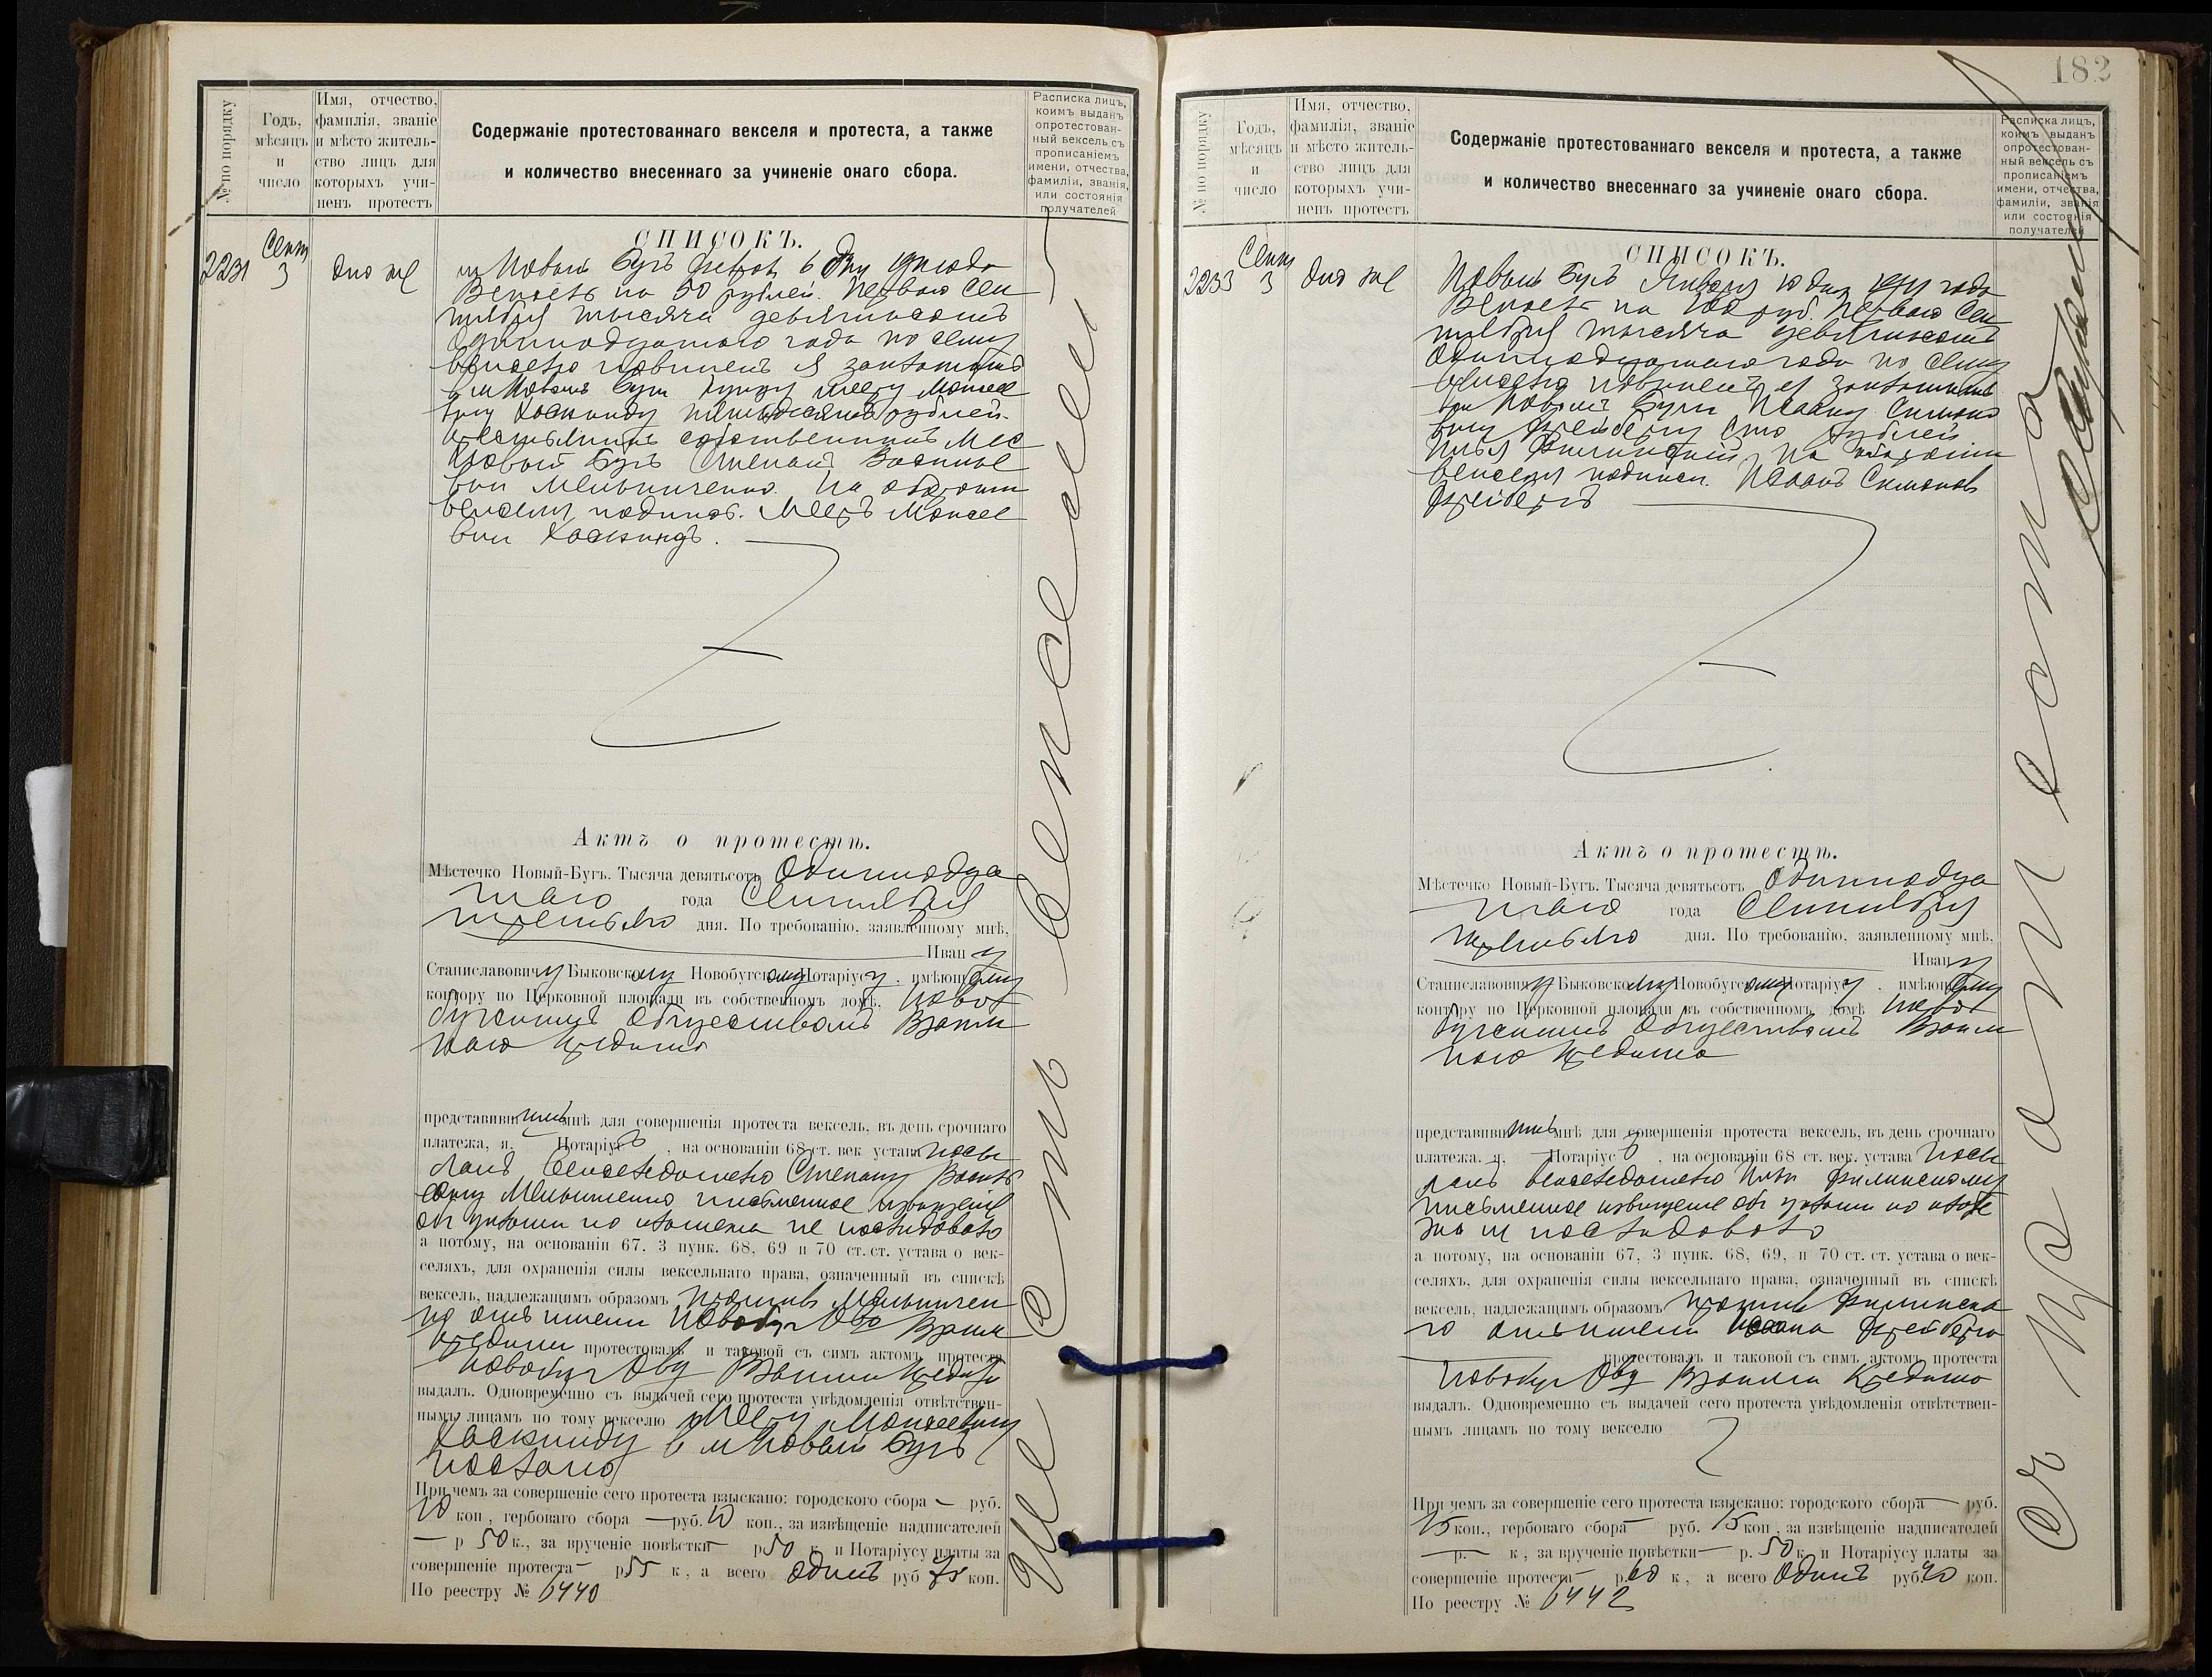 № по порядку
Годъ,
мѣсяцъ
и
число
Имя, отчество,
фамилія, званіе
и мѣсто житель-
ство лицъ для
которыхъ учи-
ненъ протестъ
Содержаніе протестованнаго векселя и протеста, а также
и количество внесеннаго за учиненіе онаго сбора.
Расписка лицъ,
коимъ выданъ
опротестован-
ный вексель съ
прописаніемъ
имени, отчества,
фамиліи, званія,
или состоянія
получателей
СПИСОКЪ.
2231
Сент
3
Оно же
м Новый Бугъ 6 дня года
Вексель на 50 рублей. Перваго Сен
тября тысяча девятьсотъ
Одиннадцатаго года по сему
векселю повиненъ я заплатить
в м Новомъ Буги Мееру Моисее
вичу Хаскинду пятьдесятъ рублей.
собственникъ Мес
Новый Бугъ Степанъ Василье
вич Мельниченко. На обороти
векселя подпись. Мееръ Моисее
вич Хаскиндъ.
Актъ о протестѣ.
Мѣстечко Новый-Бугъ. Тысяча девятьсотъ Одиннадца
таго года Сентября
третьяго дня. По требованію, заявленному мнѣ,
Ивану
Станиславовичу Быковскому Новобугскому Нотаріусу, имѣющему
контору по Церковной площади въ собственномъ домѣ, Ново
бугскимъ Обществомъ Взаим
наго Кредита
представившимъ мнѣ для совершенія протеста вексель, въ день срочнаго
платежа, я, Нотаріусъ, на основаніи 68 ст. век устава посы
лалъ векселедателю Степану Василье
вичу Мельниченко письменное извещение
об уплати но платежа не последовало
а потому, на основаніи 67. 3 пунк. 68, 69 и 70 ст.ст. устава о век-
селяхъ, для охраненія силы вексельнаго права, означенный въ спискѣ
вексель, надлежащимъ образомъ противъ Мельничен
ко отъ имени Новобуг Ова Взаим
Кредита протестовалъ и таковой съ симъ актомъ протеста
Новобуг Ову Взаимн Кредита
выдалъ. Одновременно съ выдачей сего протеста увѣдомленія отвѣтствен-
нымъ лицамъ по тому векселю Мееру Моисеевичу
Хаскинду в м Новый Бугъ
послано
При чемъ за совершеніе сего протеста взыскано: городского сбора — руб.
10 коп, гербоваго сбора — руб. 10 коп., за извѣщеніе надписателей
— р 50 к., за врученіе повѣстки — р 50 к. и Нотаріусу платы за
совершеніе протеста — р 55 к, а всего Одинъ руб 75 коп.
По реестру № 6440
182
№ по порядку
Годъ,
мѣсяцъ
и
число
Имя, отчество,
фамилія, званіе
и мѣсто житель-
ство лицъ для
которыхъ учи-
ненъ протестъ
Содержаніе протестованнаго векселя и протеста, а также
и количество внесеннаго за учиненіе онаго сбора.
Расписка лицъ,
коимъ выданъ
опротестован-
ный вексель съ
прописаніемъ
имени, отчества,
фамиліи, званія
или состоянія
получателей
СПИСОКЪ.
2233
Сент
3
Оно же
Новый Бугъ Января 10 дня 1911 года
Вексель на 100 руб. Перваго Сен
тября тысяча девятьсотъ
Одиннадцатаго года по сему
векселю повиненъ я заплатить
Новомъ Буги Исааку Симоно
вичу Фрейбергу Сто рублей
Илья Филинский, На обороти
векселя подписи. Исаакъ Симонов
Фрейбергъ
Актъ о протестѣ.
Мѣстечко Новый-Бугъ. Тысяча девятьсотъ Одиннадца
таго года Сентября
третьяго дня. По требованію, заявленному мнѣ,
Ивану
Станиславовичу Быковскому Новобугскому Нотаріусу, имѣющему
контору по Церковной площади въ собственномъ домѣ Ново
бугскимъ Обществомъ Взаим
наго Кредита
представившимъ мнѣ для совершенія протеста вексель, въ день срочнаго
платежа. я, Нотаріусъ, на основаніи 68 ст. век. устава посы
лалъ векселедателю Ильи Филинскому
письменное извещение об уплати но плате
жа не последовало
а потому, на основаніи 67, 3 пунк. 68, 69, и 70 ст. ст. устава о век-
селяхъ, для охраненія силы вексельнаго права, означенный въ спискѣ
вексель, надлежащимъ образомъ противъ Филинска
го отъ имени Фрейберга
протестовалъ и таковой съ симъ актомъ протеста
Новобуг Ову Взаимн Кредита
выдалъ. Одновременно съ выдачей сего протеста увѣдомленія отвѣтствен-
нымъ лицамъ по тому векселю
При чемъ за совершеніе сего протеста взыскано: городского сбора — руб.
15 коп., гербоваго сбора — руб. 15 коп, за извѣщеніе надписателей
— р. — к, за врученіе повѣстки — р. 50 к, и Нотаріусу платы за
совершеніе протеста — р. 60 к, а всего Одинъ руб. 40 коп.
По реестру № 6442